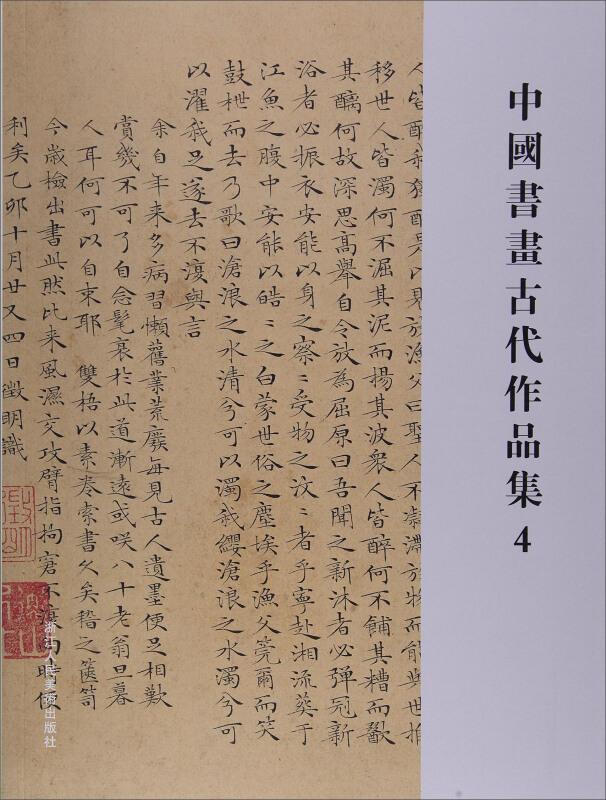 中國書畫古代作品集 4
人皆醉我獨醒是以見放漁父曰聖人不凝滯於物而能與世推
移世人皆濁何不淈其泥而揚其波衆人皆醉何不餔其糟而歠
其醨何故深思高舉自令放為屈原曰吾聞之新沐者必彈冠新
浴者必振衣安能以身之察〻受物之汶〻者乎寧赴湘流葬于
江魚之腹中安能以皓〻之白蒙世俗之塵埃乎漁父莞爾而笑
鼓枻而去乃歌曰滄浪之水清兮可以濯我纓滄浪之水濁兮可
以濯我足遂去不復與言
余自年来多病習懶舊業荒廢每見古人遺墨便足相歎
賞幾不可了自念髦衰於此道漸遠或咲八十老翁旦暮
人耳何可以自束耶 雙梧以素卷索書久矣稽之篋笥
今歲檢出書此然比来風濕交攻臂指拘窘不復向時便
利矣乙卯十月廿又四日徵明識
浙江人民美術出版社